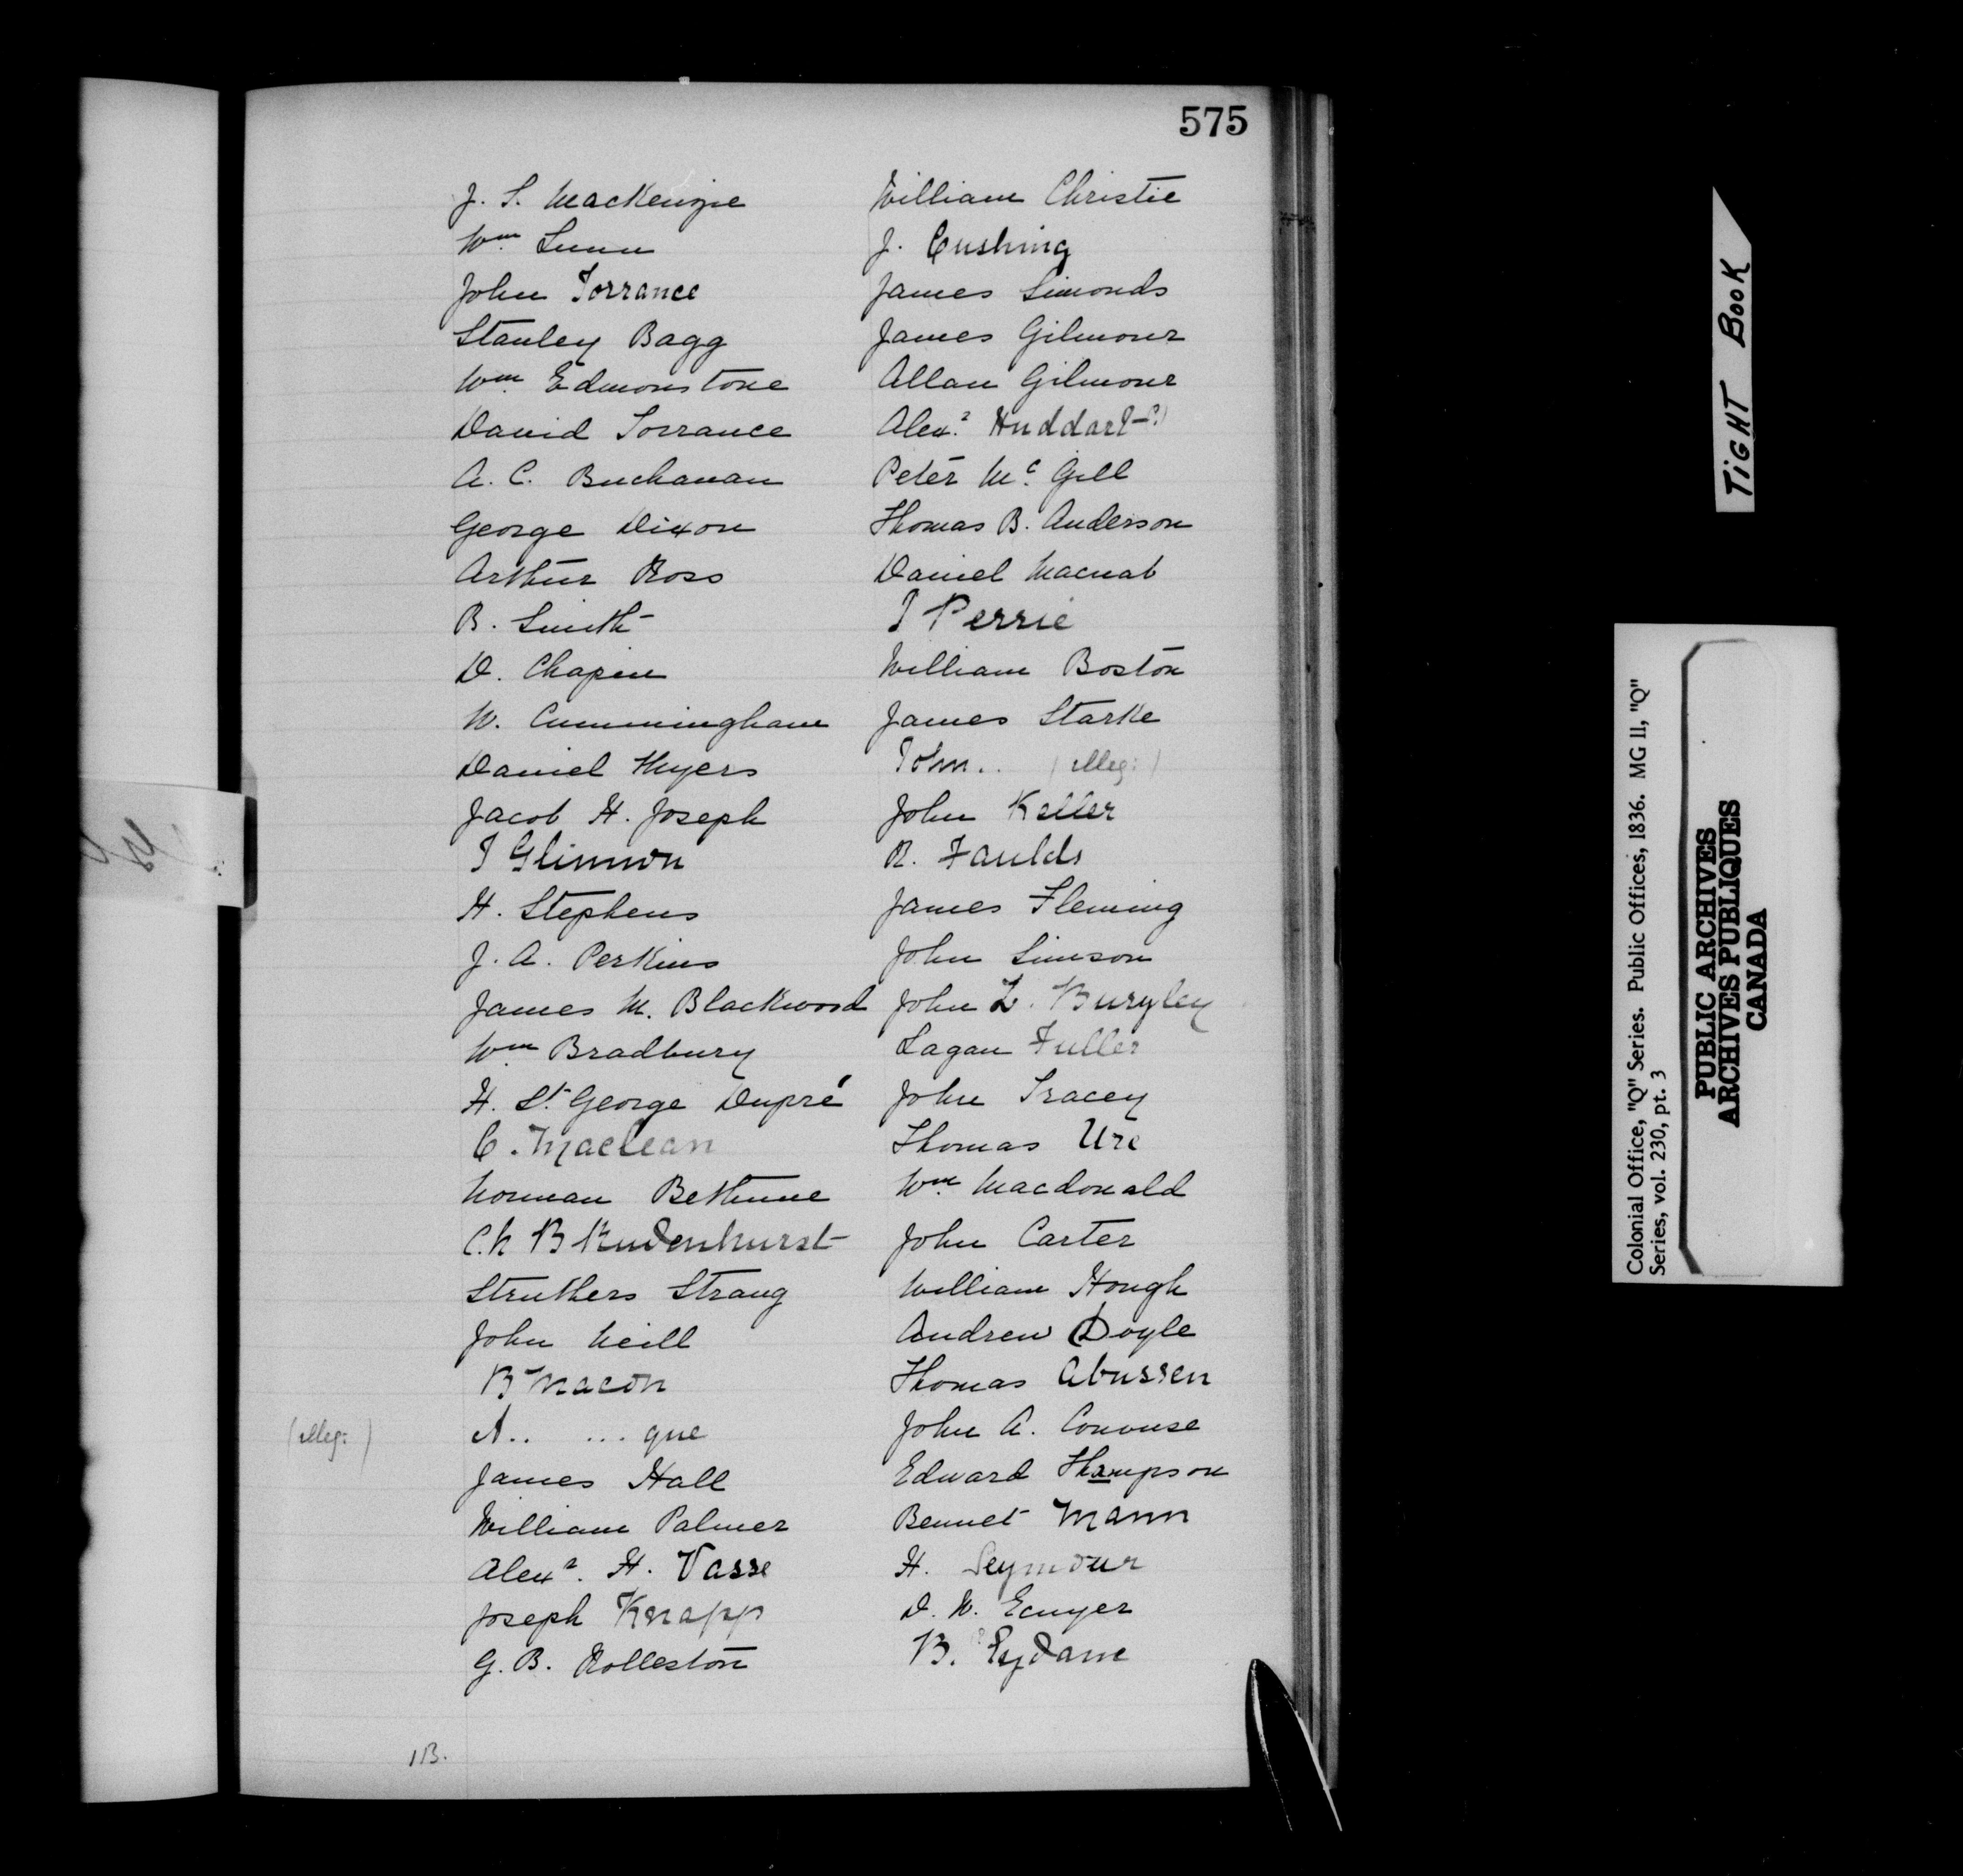 575
J. S. MacKenzie
Wm. Lunn
John Torrance
Stanley Bagg
Wm. Edmonstone
David Torrance
A. C. Buchanan
George Dixon
Arthur Ross
B. Smith
D. Chapin
W. Cummingham
Daniel Myers
Jacob H. Joseph
J Glinnon
H. Stephens
J. A. Perkins
James M. Blackwood
Wm Bradbury
H. St. George Dupré
C. Maclean
Norman Bethune
C.h B Rudenhurst
Struthers Strang
John Neill
B Macon
(illeg:) A.. ... que
James Hall
William Palmer
Alexr. H. Vasse
Joseph Knapp
G. B. Rolleston
William Christie
J. Cushing
James Simonds
James Gilmour
Allan Gilmour
Alexr. Huddart (?)
Peter Mc. Gill
Thomas B. Anderson
Daniel Macnab
J Perrie
William Boston
James Starke
John.. (illeg:)
John Keller
R. Faulds
James Fleming
John Simson
John L. Buryley
Lagan Fuller
John Tracey
Thomas Ure
Wm. Macdonald
John Carter
William Hough
Andrew Doyle
Thomas Abussen
John A. Conouse
Edward Thampson
Bennet Mann
H. Seymour
D. W. Ecuyer
B.
1B.
TIGHT BOOK
Colonial Office, "Q" Series. Public Offices, 1836. MG 11, "Q"
Series, vol. 230, pt. 3
PUBLIC ARCHIVES
ARCHIVES PUBLIQUES
CANADA